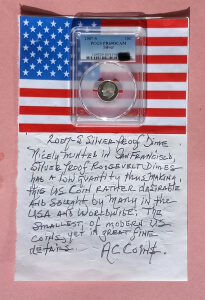 2007-S 10C
PCGS PR69DCAM
Silver
2007-S Silver Proof Dime
Nicely minted in San Francisco,
Silver Proof Roosevelt Dimes
has a low quantity thus making
this US Coin rather desirable
and sought by many in the
USA and worldwide. The
smallest of modern US
coins, yet in great fine
details. AC Coins